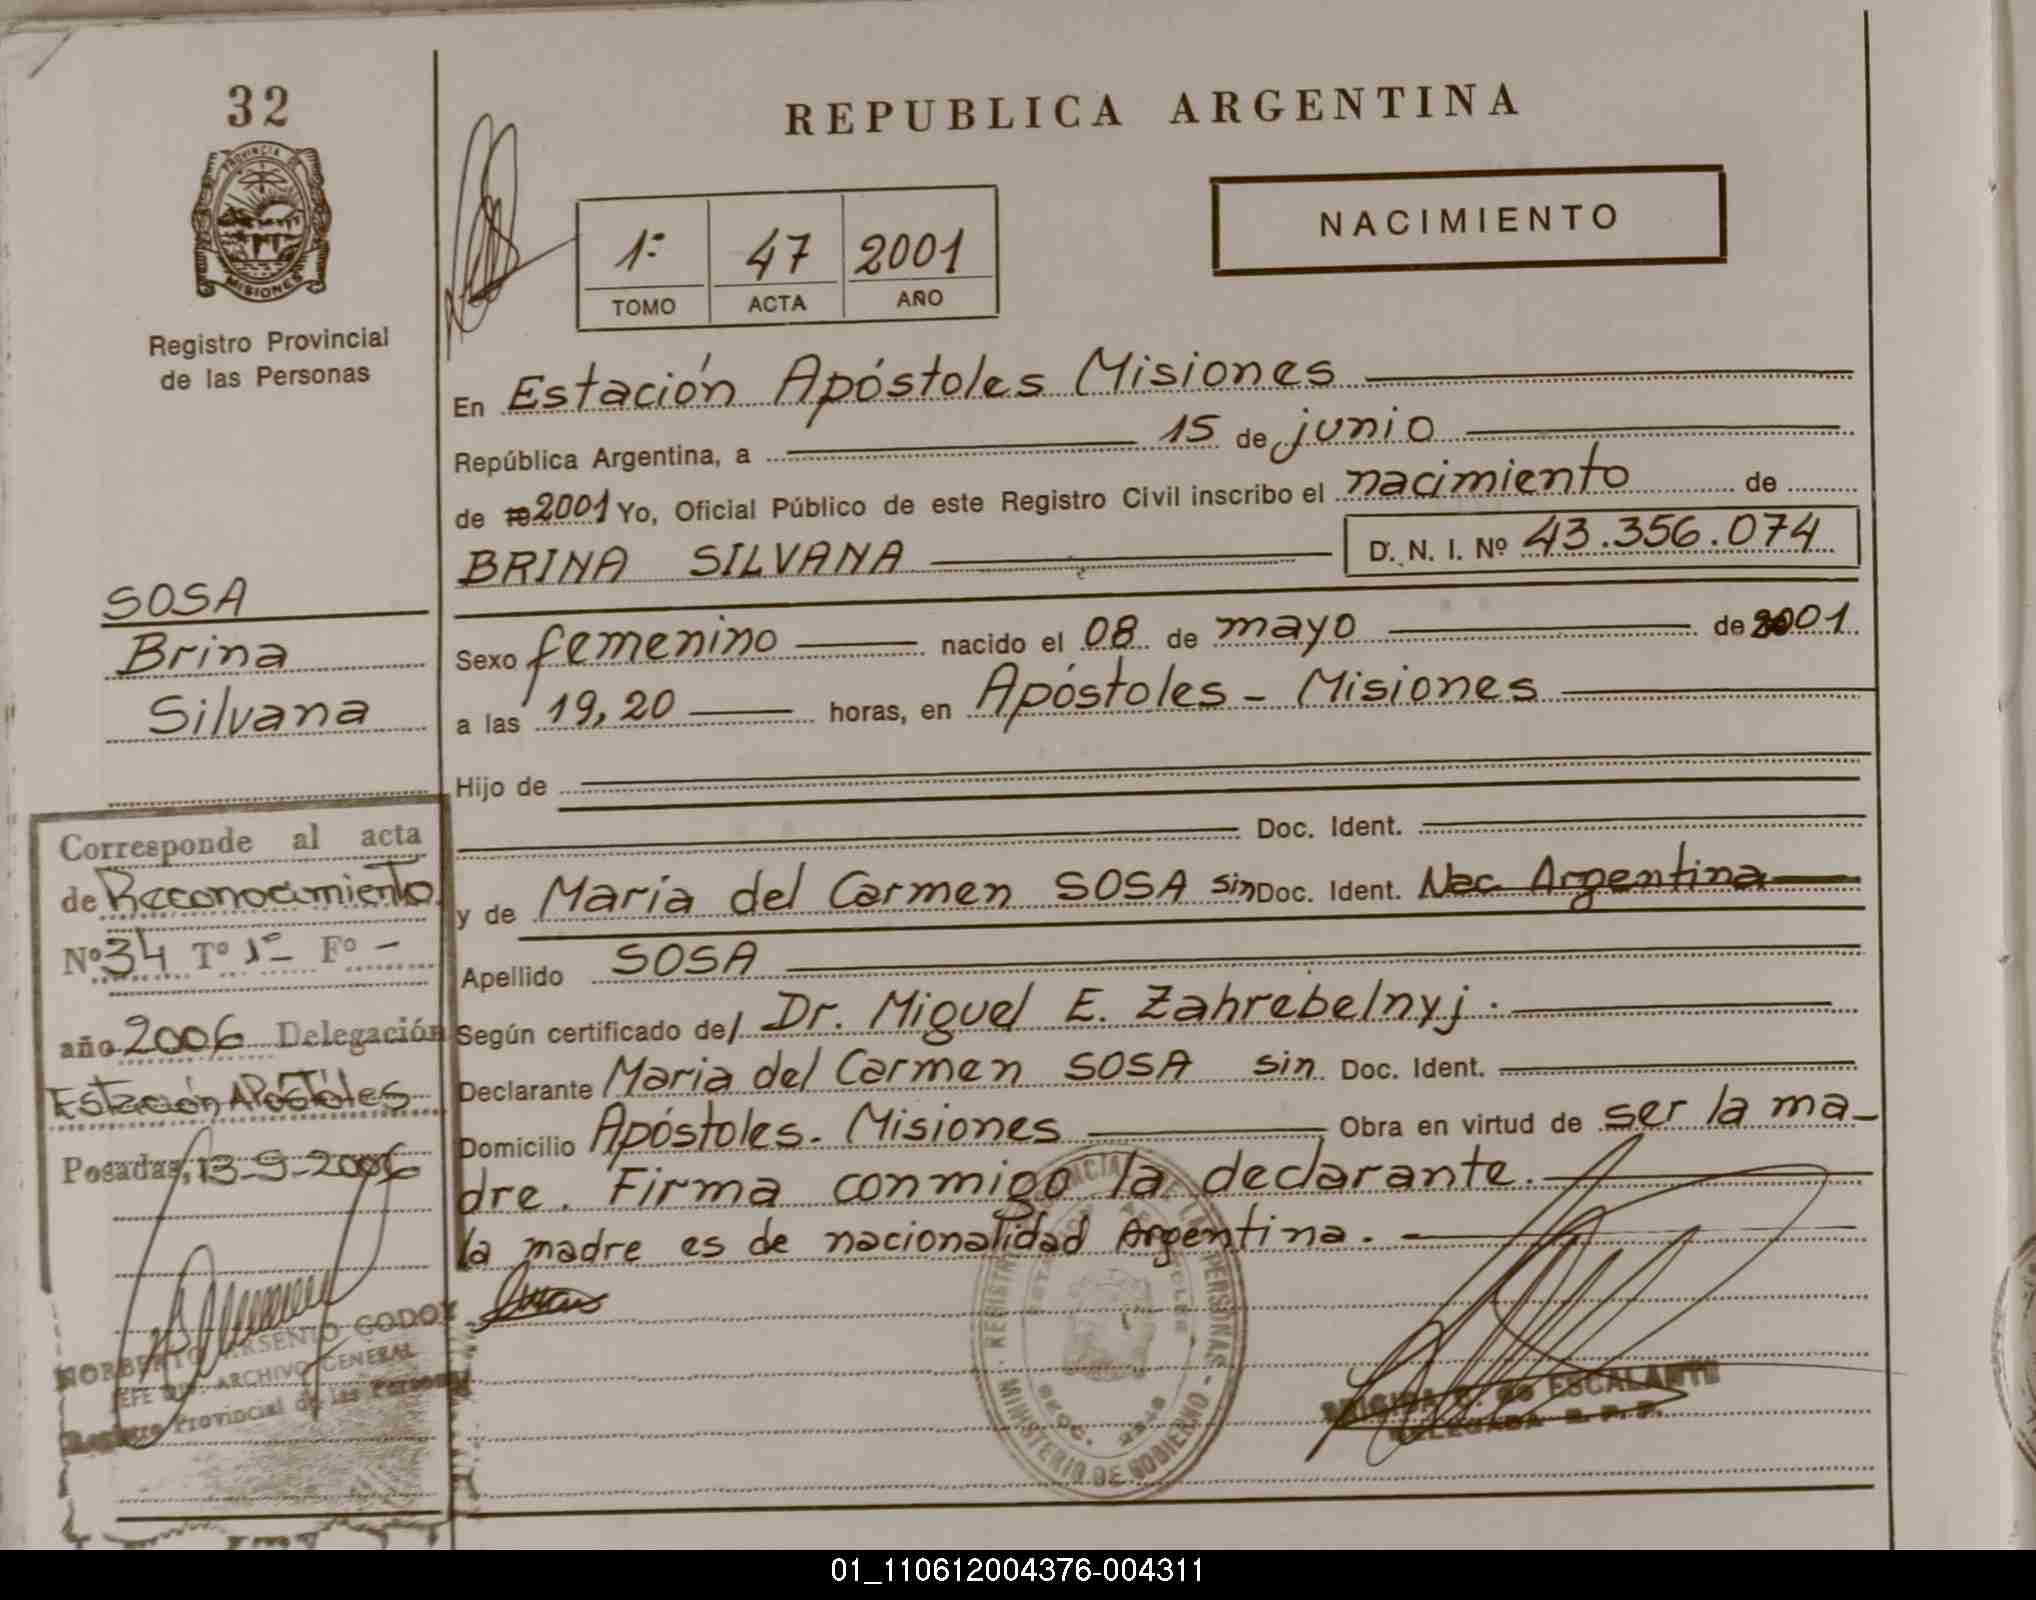 32
PROVINCIA DE
MISIONES
Registro Provincial
de las Personas
REPUBLICA ARGENTINA
NACIMIENTO
1º 47 2001
TOMO ACTA AÑO
En Estación Apóstoles Misiones
República Argentina, a 15 de junio
de 2001 Yo, Oficial Público de este Registro Civil inscribo el nacimiento de
BRINA SILVANA D. N. I. Nº 43.356.074
SOSA
Brina
Silvana
Sexo femenino nacido el 08 de mayo de 2001
a las 19,20 horas, en Apóstoles - Misiones
Hijo de
Doc. Ident.
y de María del Carmen SOSA sin Doc. Ident. Nac. Argentina
Apellido SOSA
Según certificado del Dr. Miguel E. Zahrebelnyj.
Declarante Maria del Carmen SOSA sin Doc. Ident.
Domicilio Apóstoles. Misiones Obra en virtud de ser la ma-
dre. Firma conmigo la declarante.
la madre es de nacionalidad Argentina.
Corresponde al acta
de Reconocimiento
Nº 34 Tº 1º Fº -
año 2006 Delegación
Estación Apóstoles
Posadas, 13-9-2006
NORBERTO ARSENIO GODOY
JEFE DIV. ARCHIVO GENERAL
Registro Provincial de las Personas
REGISTRO PROVINCIAL DE LAS PERSONAS
MINISTERIO DE GOBIERNO
DE ESCALANTE
DELEGADA R. P. P.
01_110612004376-004311